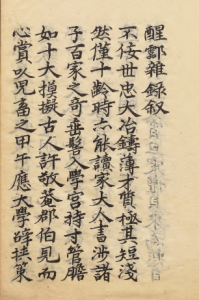 醒鄠雜錄叙
不佞世忠大冶鑄薄才質極其短淺
然僅十齡時亦能讀家大人書涉諸
子百家之奇垂髫入學宫持寸管臆
如十大模擬古人許敬菴郡伯見而
心賞以児畜之甲午應大學辟拱策